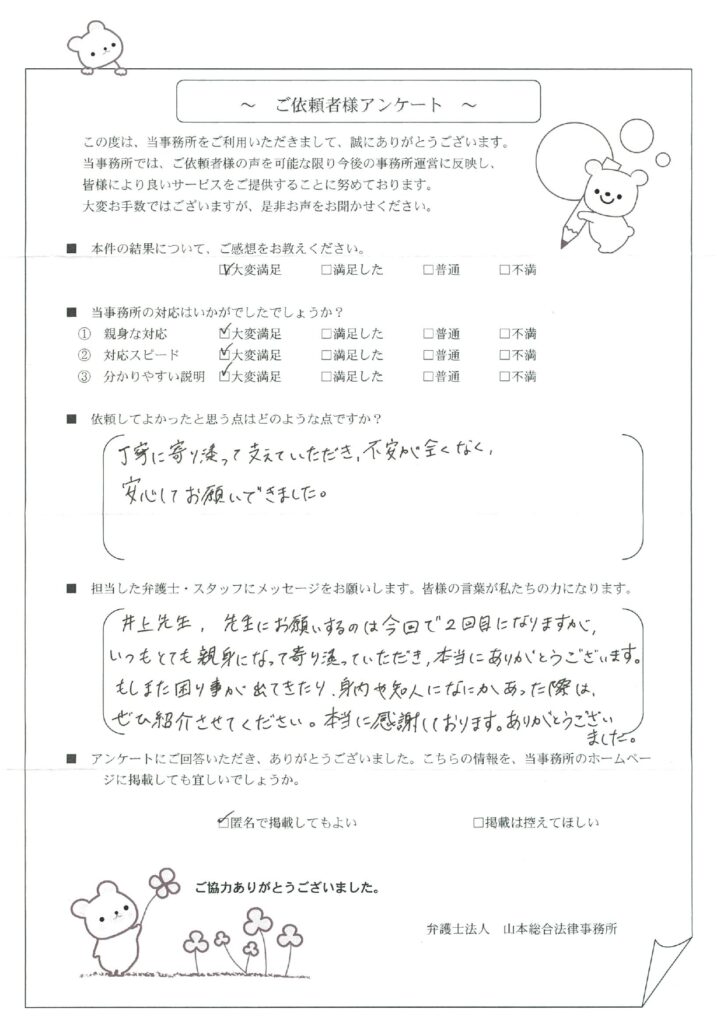 ～ ご依頼者様アンケート ～
この度は、当事務所をご利用いただきまして、誠にありがとうございます。
当事務所では、ご依頼者様の声を可能な限り今後の事務所運営に反映し、
皆様により良いサービスをご提供することに努めております。
大変お手数ではございますが、是非お声をお聞かせください。
■ 本件の結果について、ご感想をお教えください。
☑大変満足 □満足した □普通 □不満
■ 当事務所の対応はいかがでしたでしょうか？
① 親身な対応 ☑大変満足 □満足した □普通 □不満
② 対応スピード ☑大変満足 □満足した □普通 □不満
③ 分かりやすい説明 ☑大変満足 □満足した □普通 □不満
■ 依頼してよかったと思う点はどのような点ですか？
丁寧に寄り添って支えていただき、不安が全くなく、
安心してお願いできました。
■ 担当した弁護士・スタッフにメッセージをお願いします。皆様の言葉が私たちの力になります。
井上先生、先生にお願いするのは今回で２回目になりますが、
いつもとても親身になって寄り添っていただき、本当にありがとうございます。
もしまた困り事が出てきたり、身内や知人になにかあった際は、
ぜひ紹介させてください。本当に感謝しております。ありがとうござい
ました。
■ アンケートにご回答いただき、ありがとうございました。こちらの情報を、当事務所のホームペー
ジに掲載しても宜しいでしょうか。
☑匿名で掲載してもよい □掲載は控えてほしい
ご協力ありがとうございました。
弁護士法人 山本総合法律事務所